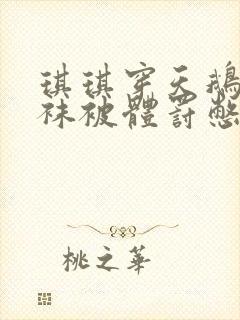 琪琪穿天鵝
袜被體罰憋
桃之華